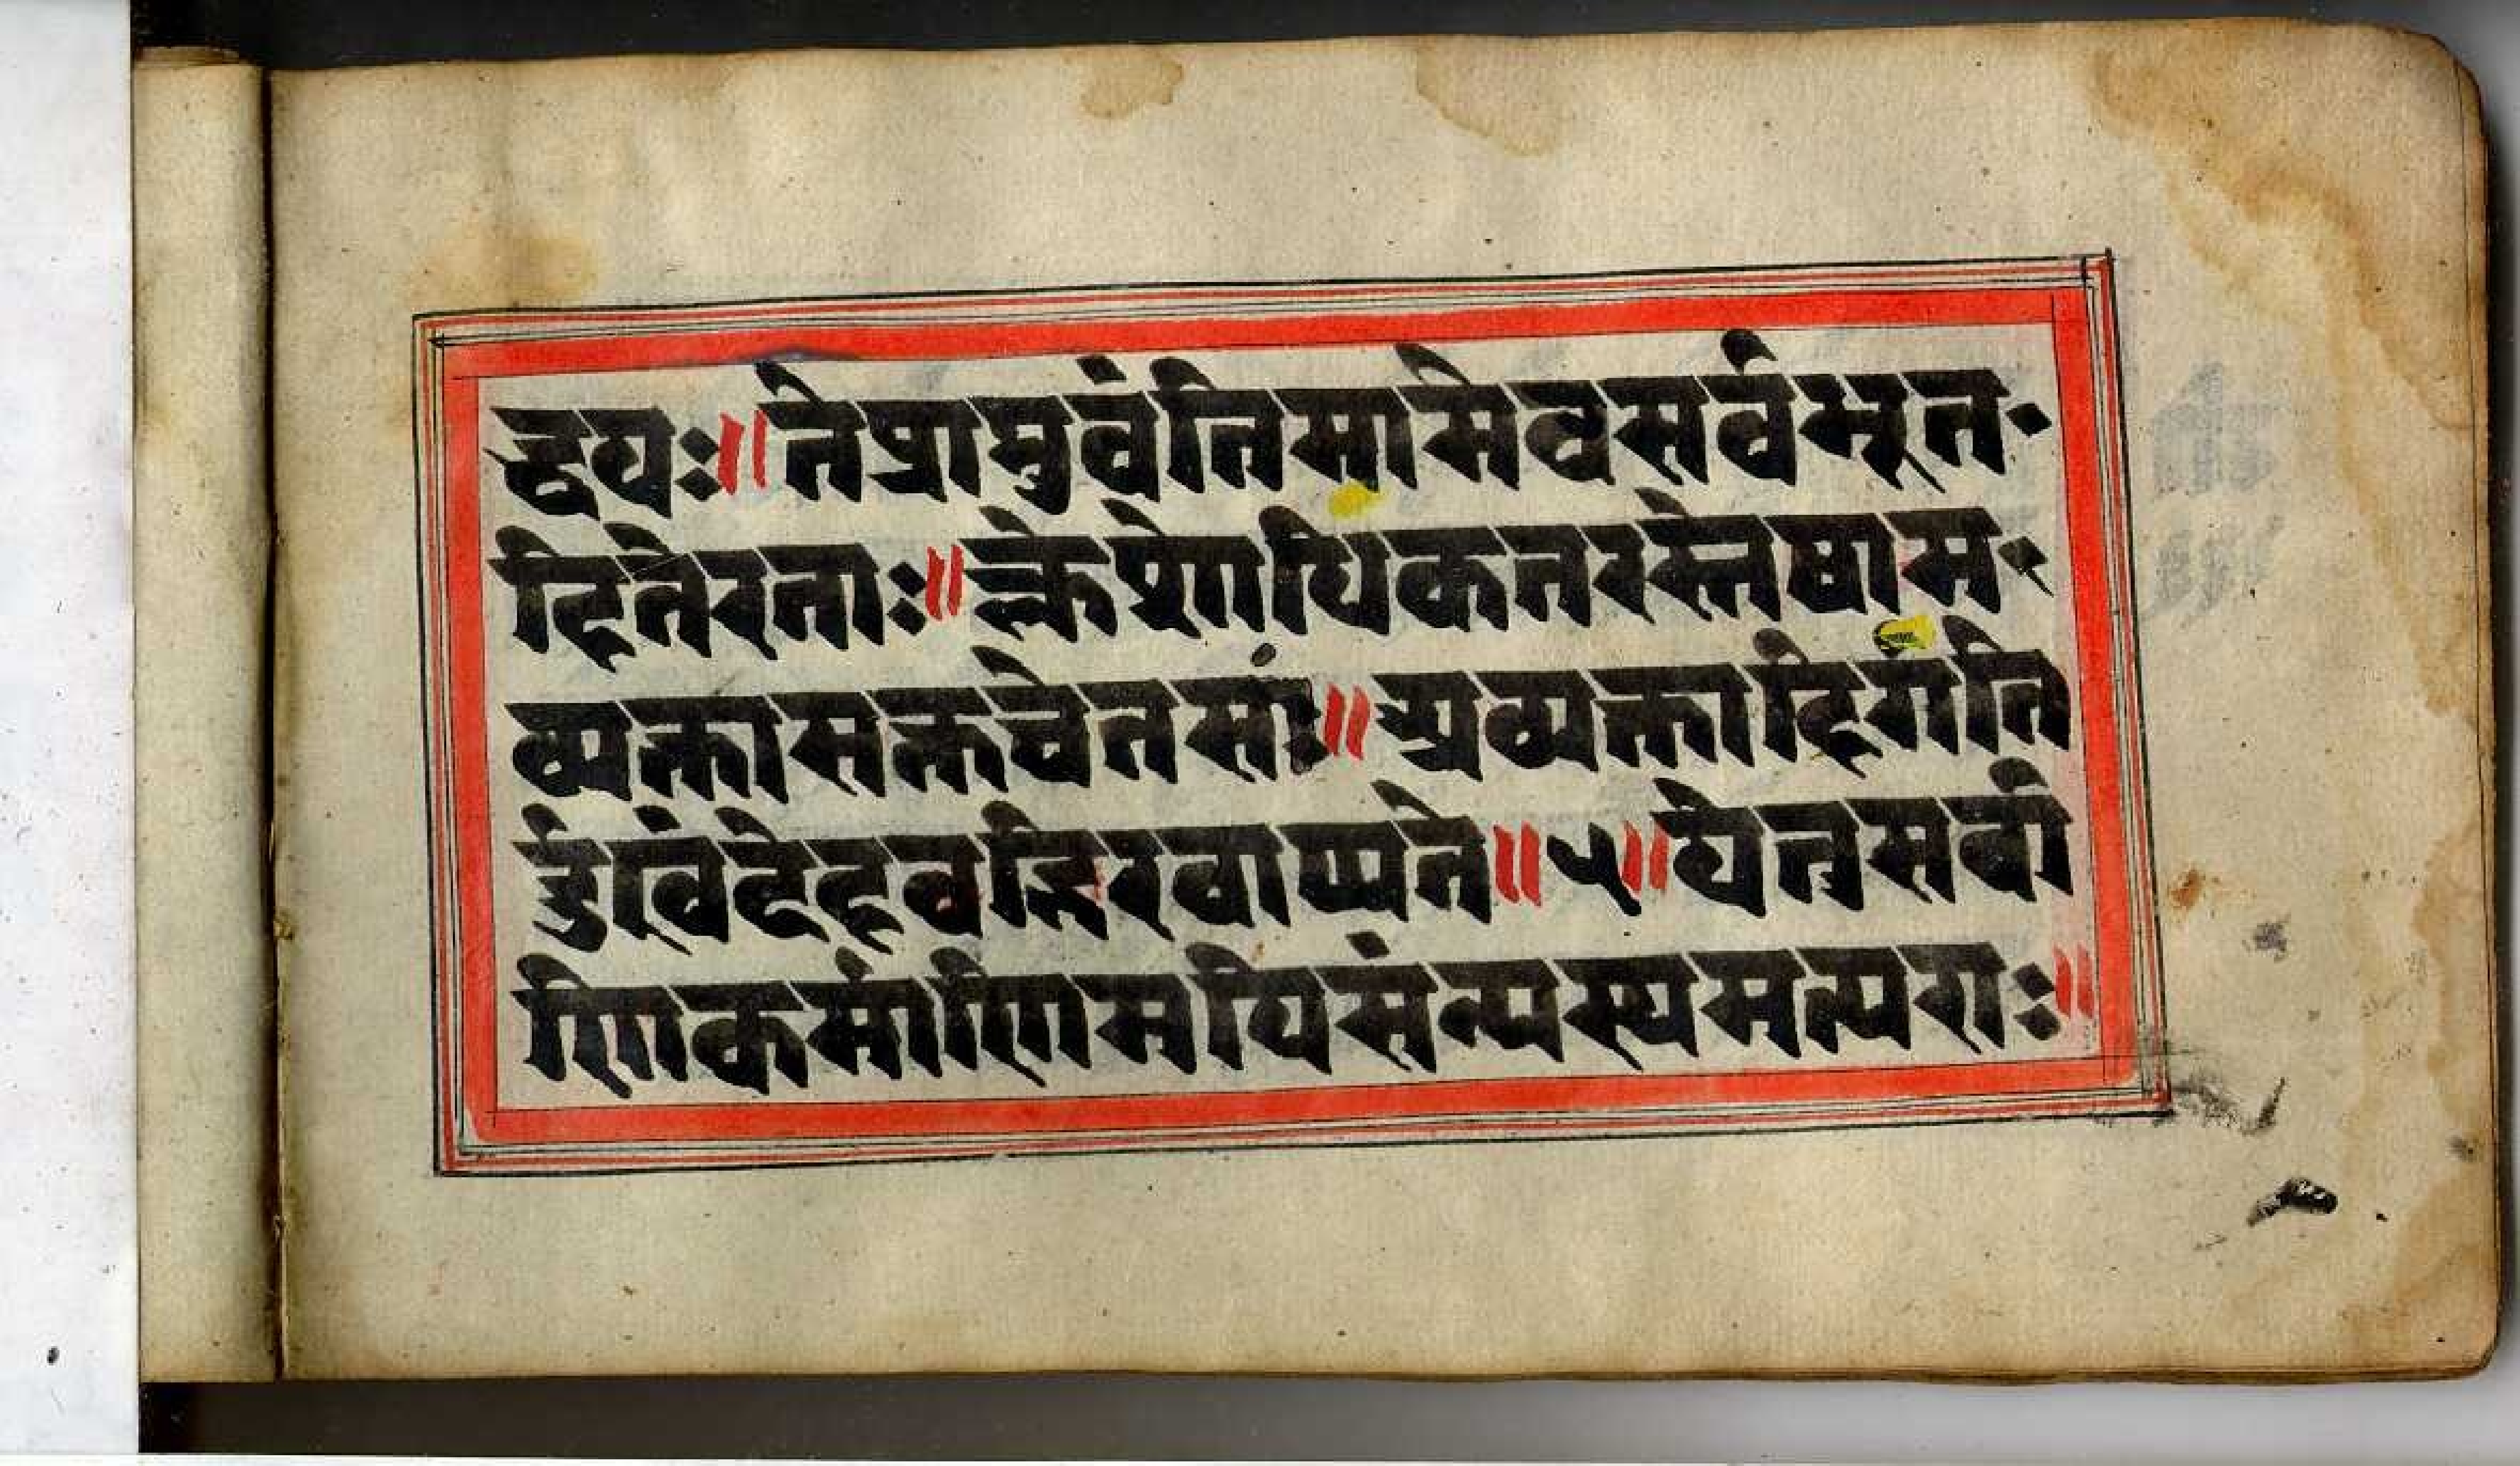 द्धयः॥ते प्राप्नुवंति मामेव सर्वभूत
हिते रताः॥क्लेशोधिकतरस्तेषाम
व्यक्तासक्तचेतसां॥अव्यक्ता हि गति
र्दुःखं देहवद्भिरवाप्यते॥५॥ये तु सर्वा
णि कर्माणि मयि संन्यस्य मत्पराः॥